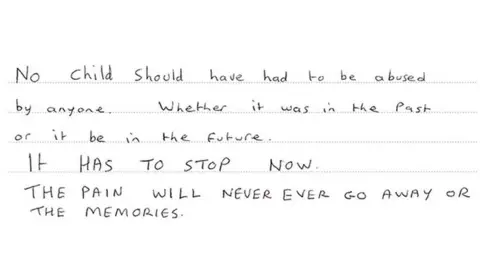 No child should have had to be abused
by anyone. Whether it was in the past
or it be in the future.
It HAS TO STOP NOW.
THE PAIN WILL NEVER EVER GO AWAY OR
THE MEMORIES.